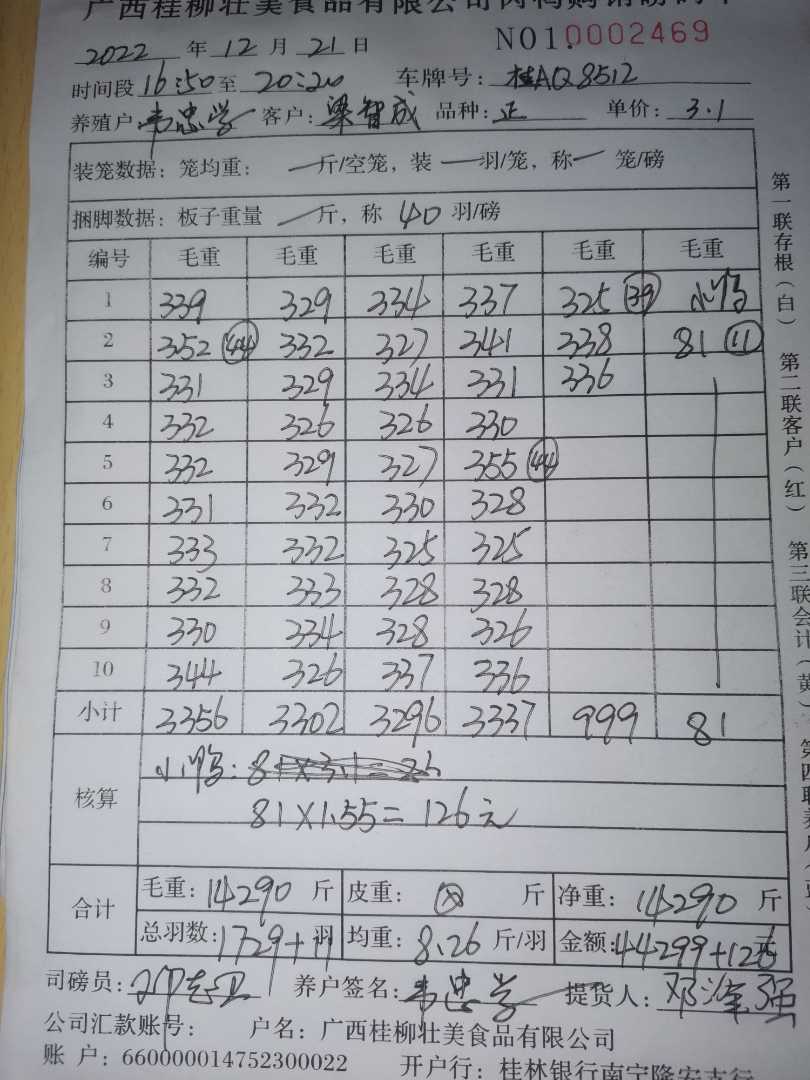 广西桂柳壮美食品有限公司肉鸭购销磅码单
2022 年 12 月 21 日 NO1.0002469
时间段 16:50 至 20:20 车牌号: 桂AQ8512
养殖户: 韦忠学 客户: 梁智成 品种: 正 单价: 3.1
装笼数据: 笼均重: 一 斤/空笼, 装 一 羽/笼, 称 一 笼/磅
捆脚数据: 板子重量 一 斤, 称 40 羽/磅
编号 毛重 毛重 毛重 毛重 毛重 毛重
1 339 329 334 337 325 (39) 小鸭
2 352 (44) 332 327 341 338 81 (11)
3 331 329 334 331 336
4 332 326 326 330
5 332 329 327 355 (44)
6 331 332 330 328
7 333 332 325 325
8 332 333 328 328
9 330 334 328 326
10 344 326 337 336
小计 3356 3302 3296 3337 999 81
核算 小鸭: 81×3.1=
81×1.55=126元
合计 毛重: 14290 斤 皮重: 斤 净重: 14290 斤
总羽数: 1729+ 羽 均重: 8.26 斤/羽 金额: 44299+126元
司磅员: 养户签名: 韦忠学 提货人: 邓泽强
公司汇款账号: 户名: 广西桂柳壮美食品有限公司
账 户: 660000014752300022 开户行: 桂林银行南宁隆安支行
第一联存根(白) 第二联客户(红) 第三联会计(黄) 第四联养户(蓝)